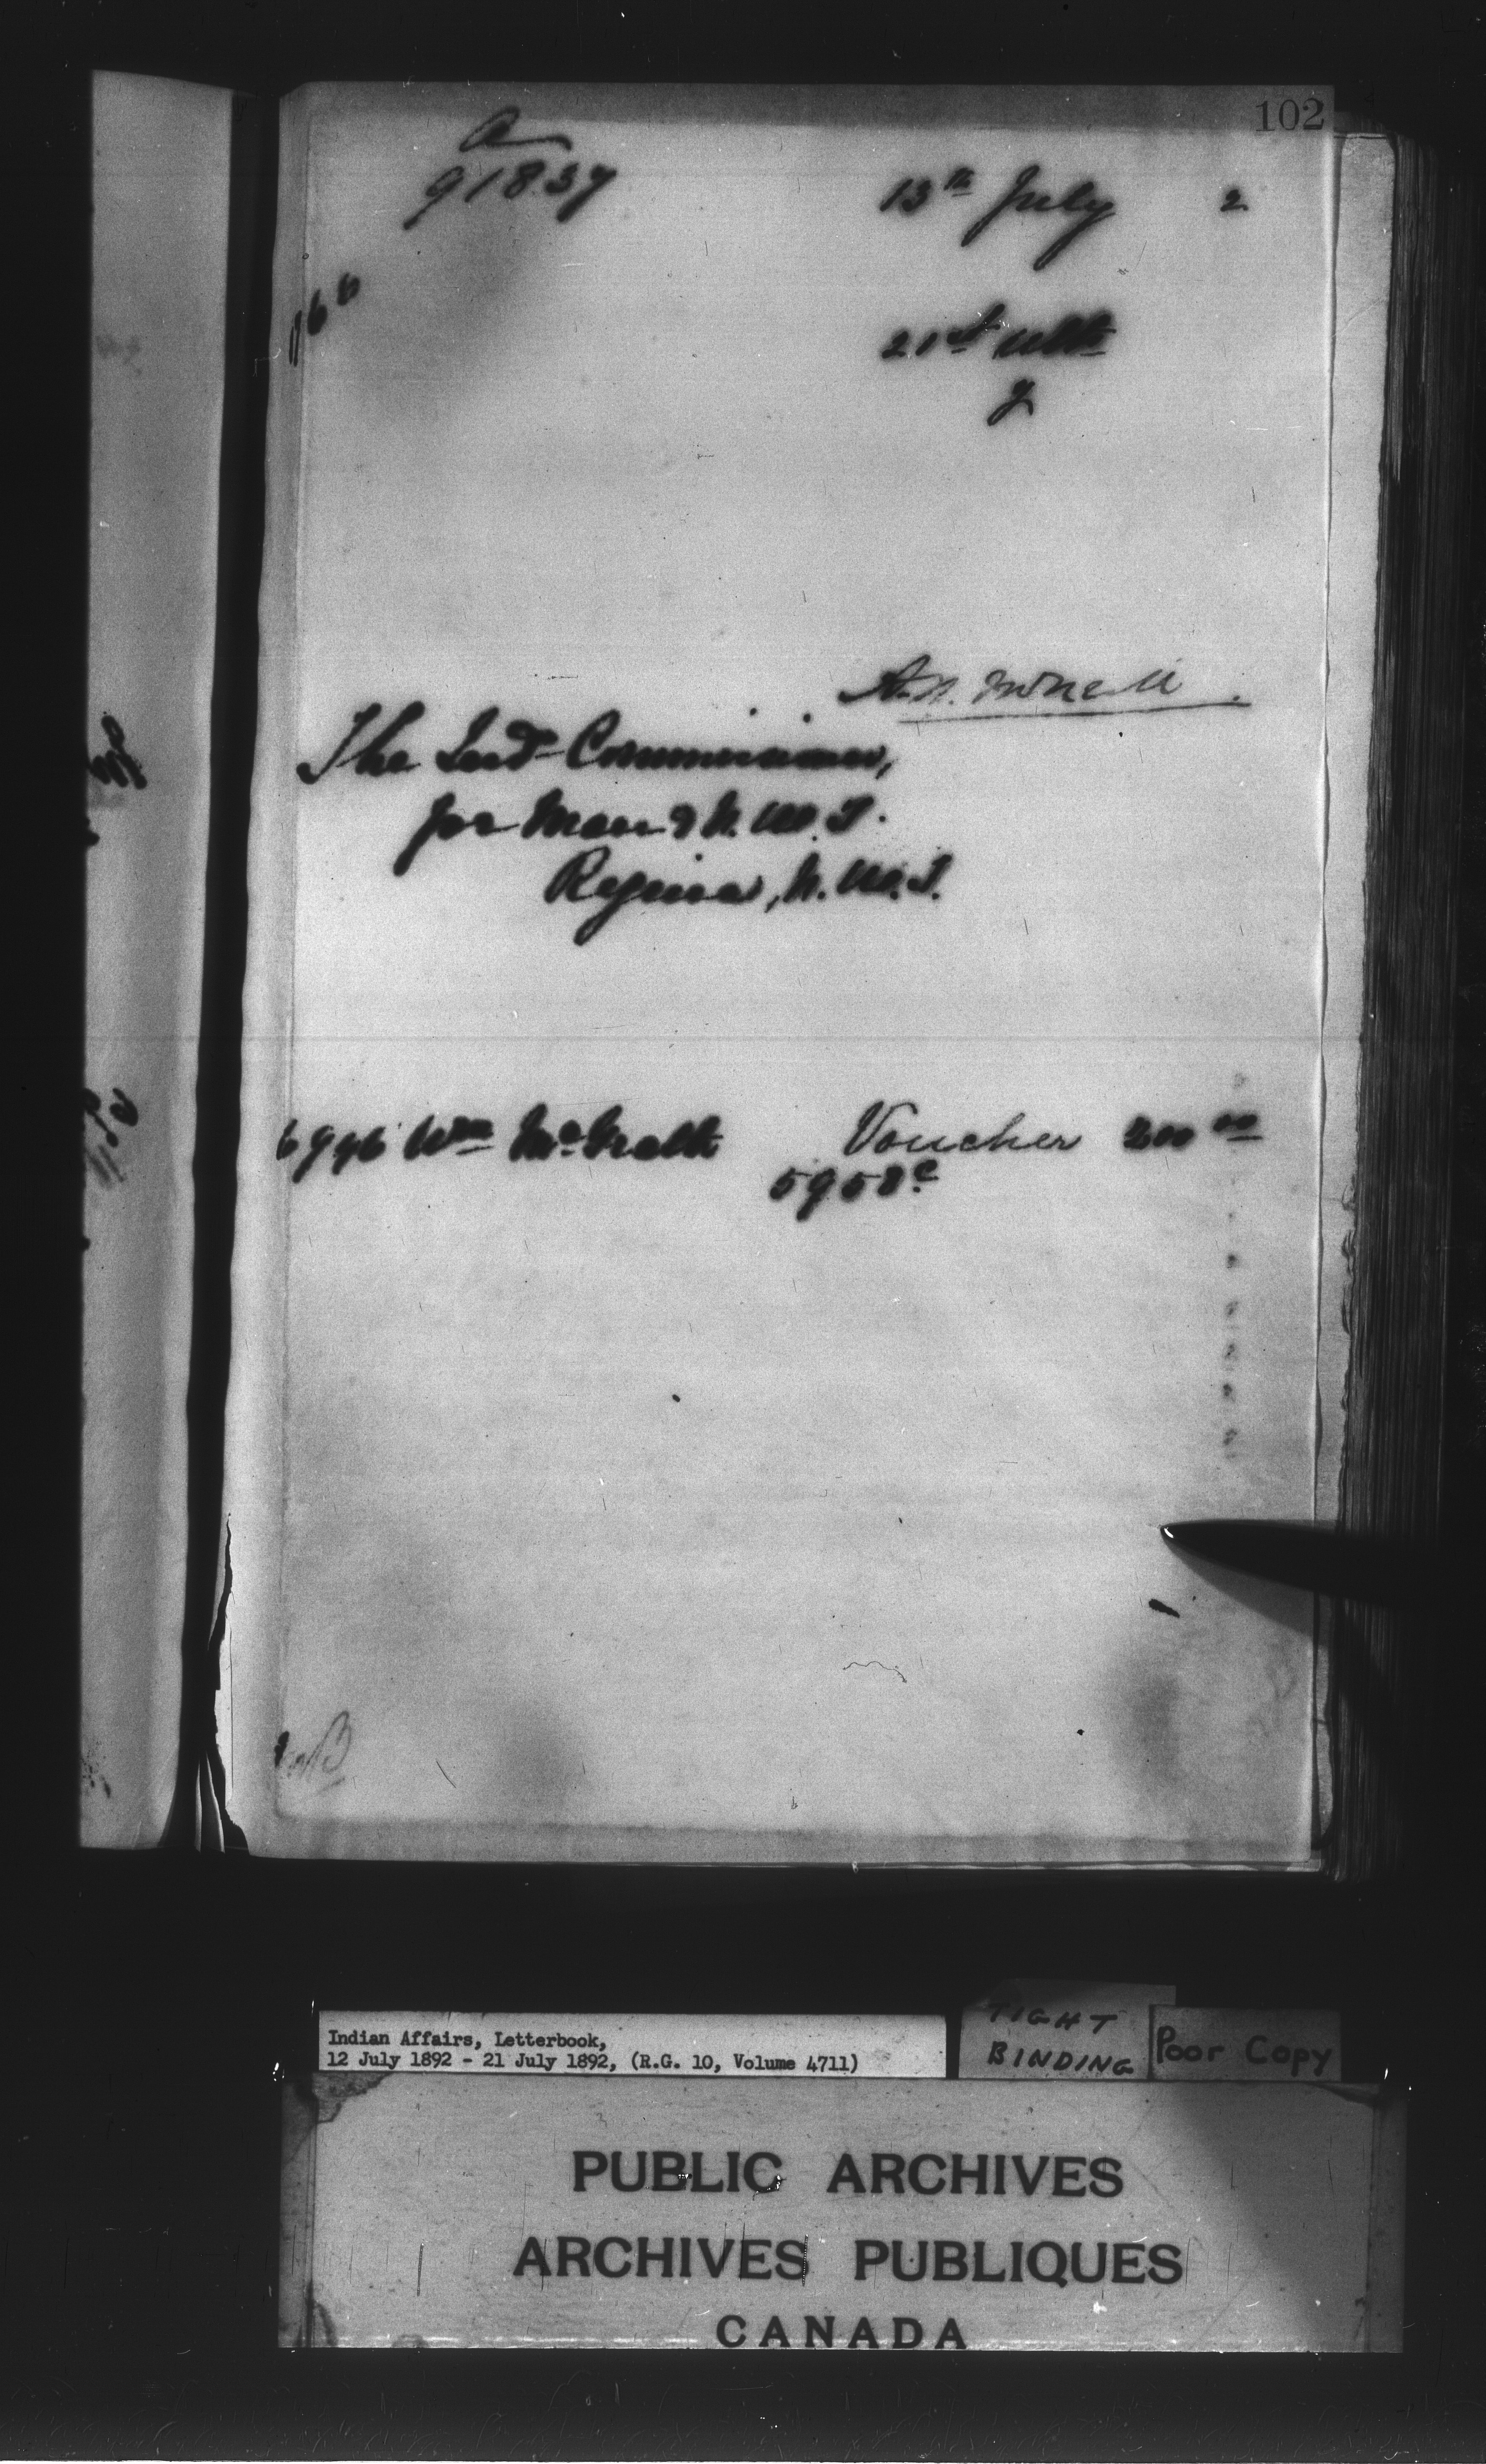 102
a
91837
13th July 2
21st ulto
y
The Ind Commissioner,
for Man & N.W.T.
Regina, N.W.T.
6996 Wm McGrath Voucher 200 00
5958c
Indian Affairs, Letterbook,
12 July 1892 - 21 July 1892, (R.G. 10, Volume 4711)
TIGHT
BINDING
Poor Copy
PUBLIC ARCHIVES
ARCHIVES PUBLIQUES
CANADA